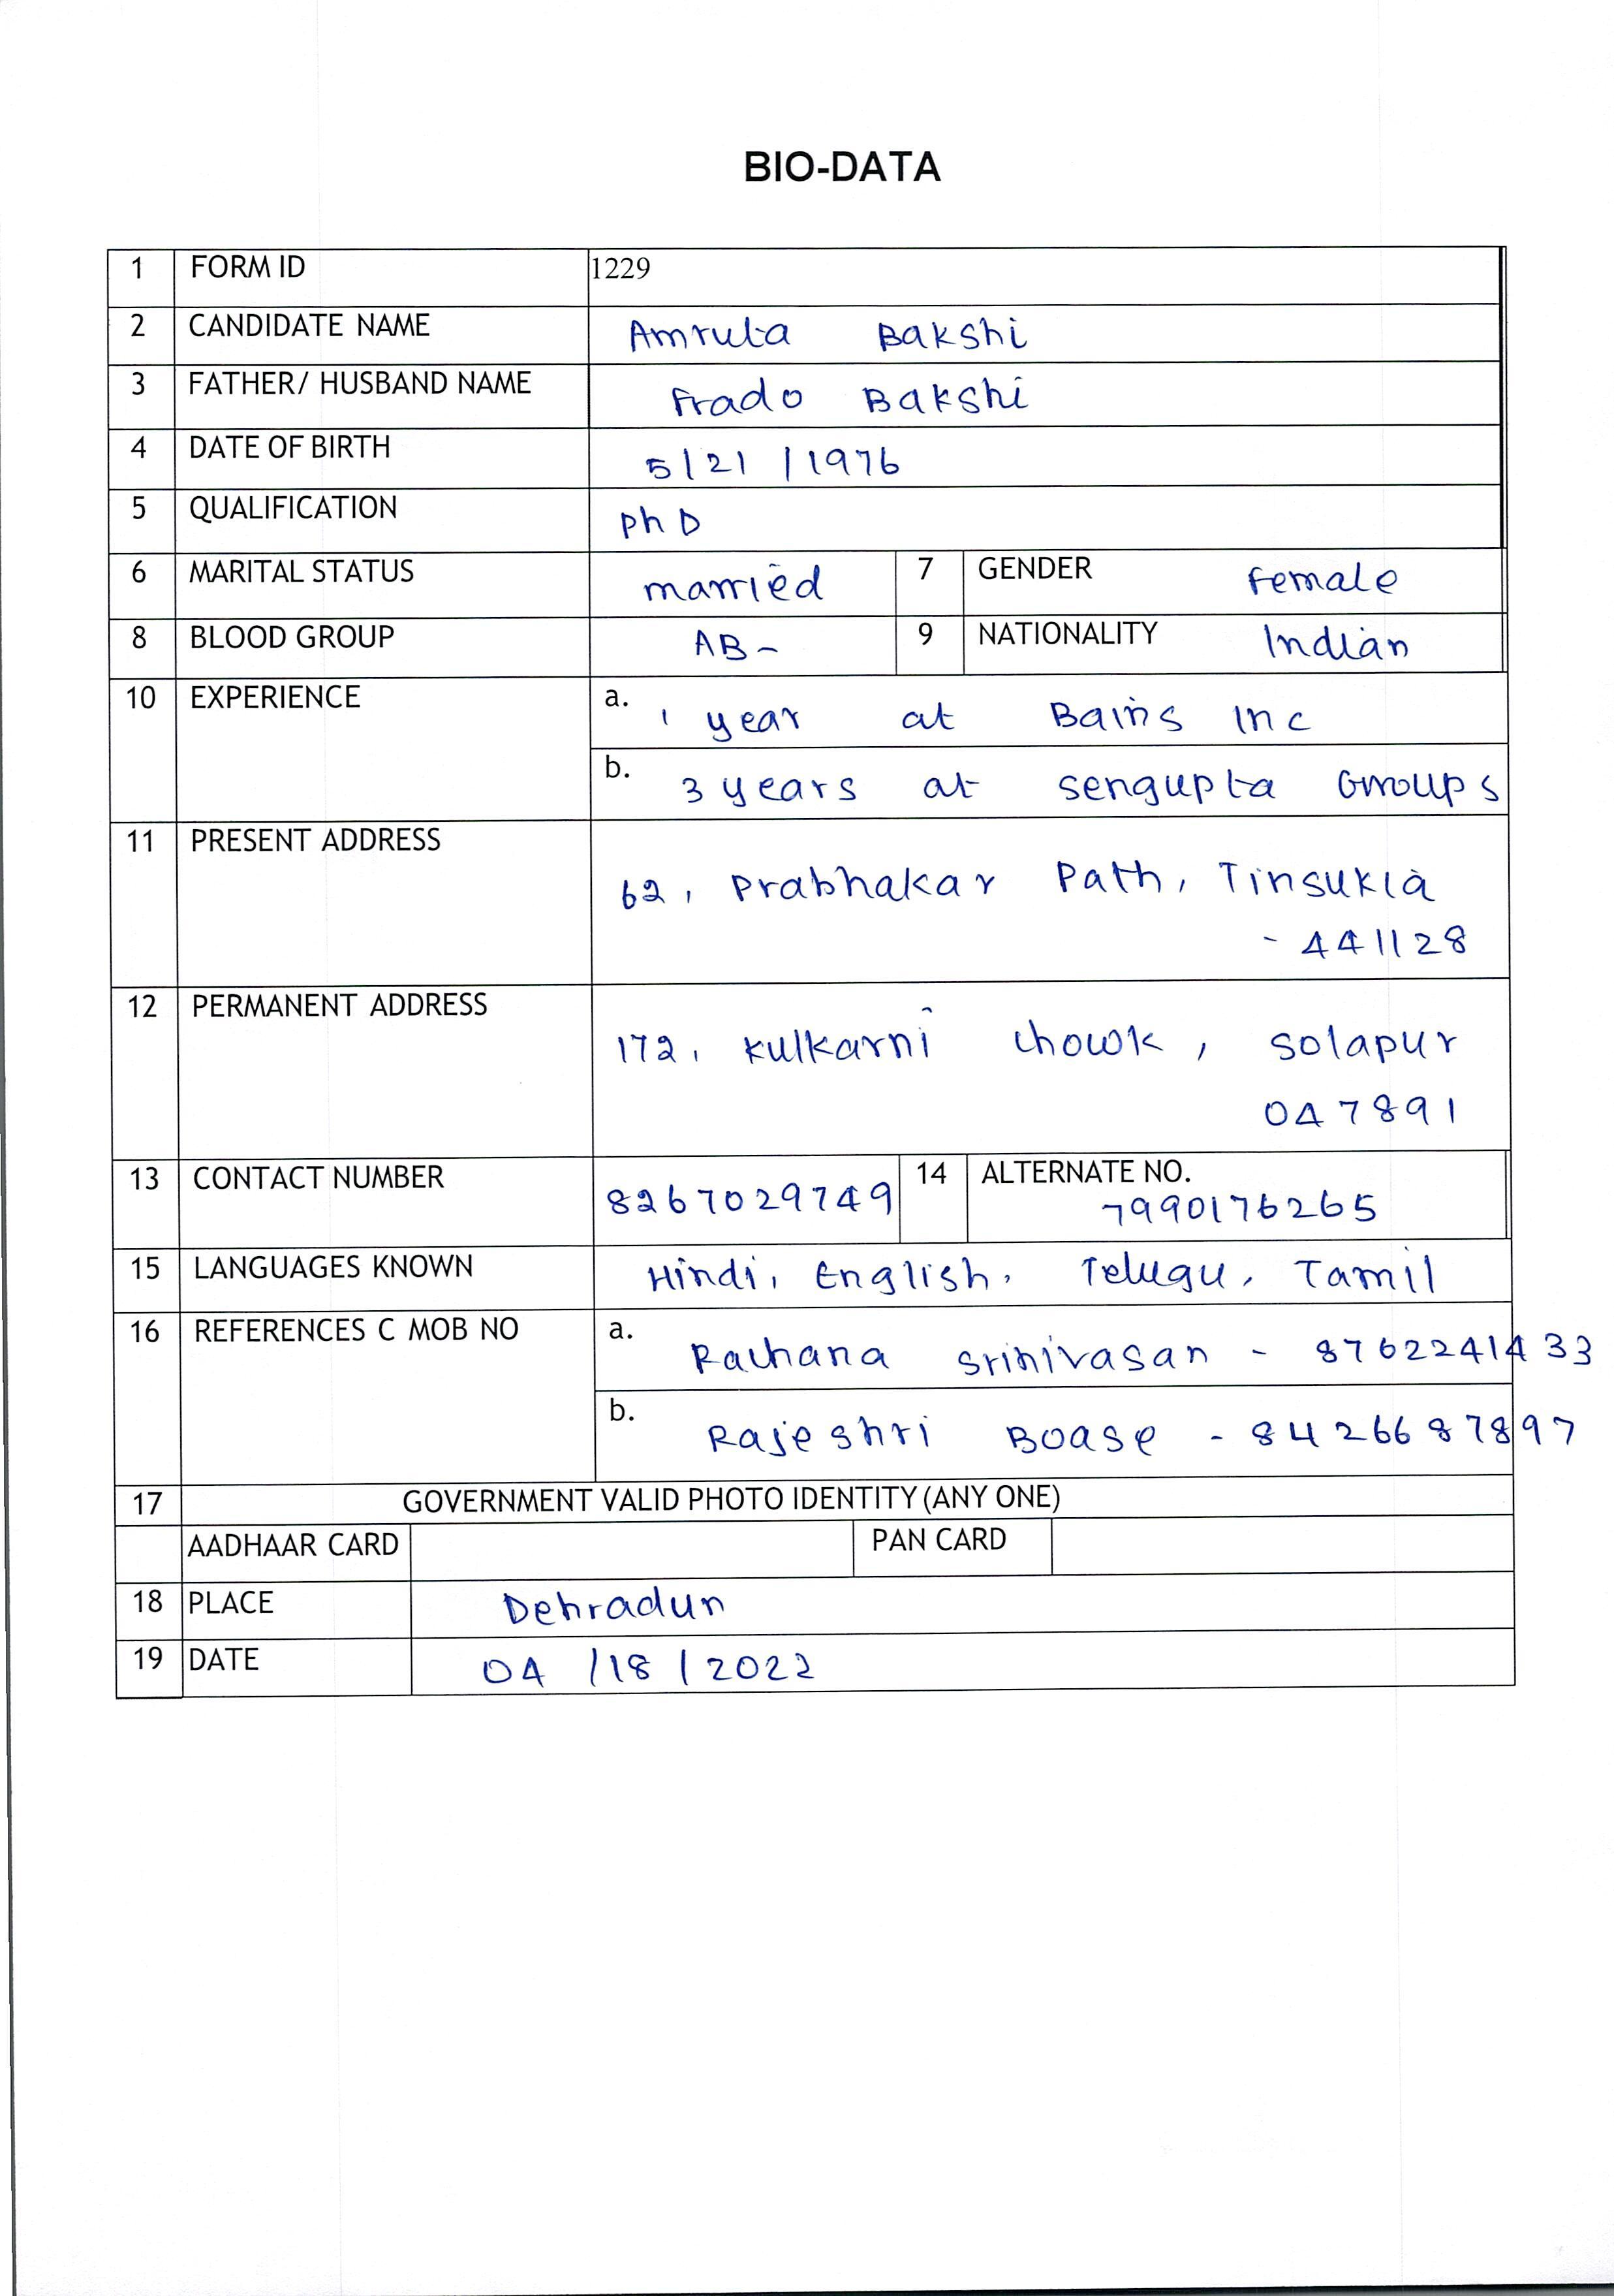 BIO-DATA
1 FORM ID 1229
2 CANDIDATE NAME Amruta Bakshi
3 FATHER/ HUSBAND NAME Frado Bakshi
4 DATE OF BIRTH 5/21/1976
5 QUALIFICATION PhD
6 MARITAL STATUS married 7 GENDER Female
8 BLOOD GROUP AB- 9 NATIONALITY Indian
10 EXPERIENCE a. 1 year at Bains Inc
b. 3 years at sengupta Groups
11 PRESENT ADDRESS
62, Prabhakar Path, Tinsukia
- 441128
12 PERMANENT ADDRESS
172, Kulkarni Chowk, Solapur
047891
13 CONTACT NUMBER 8267029749 14 ALTERNATE NO.
7990176265
15 LANGUAGES KNOWN Hindi, English, Telugu, Tamil
16 REFERENCES C MOB NO a. Rachana Srinivasan - 8762241433
b. Rajeshri Boase - 8426687897
17 GOVERNMENT VALID PHOTO IDENTITY (ANY ONE)
AADHAAR CARD PAN CARD
18 PLACE Dehradun
19 DATE 04/18/2022